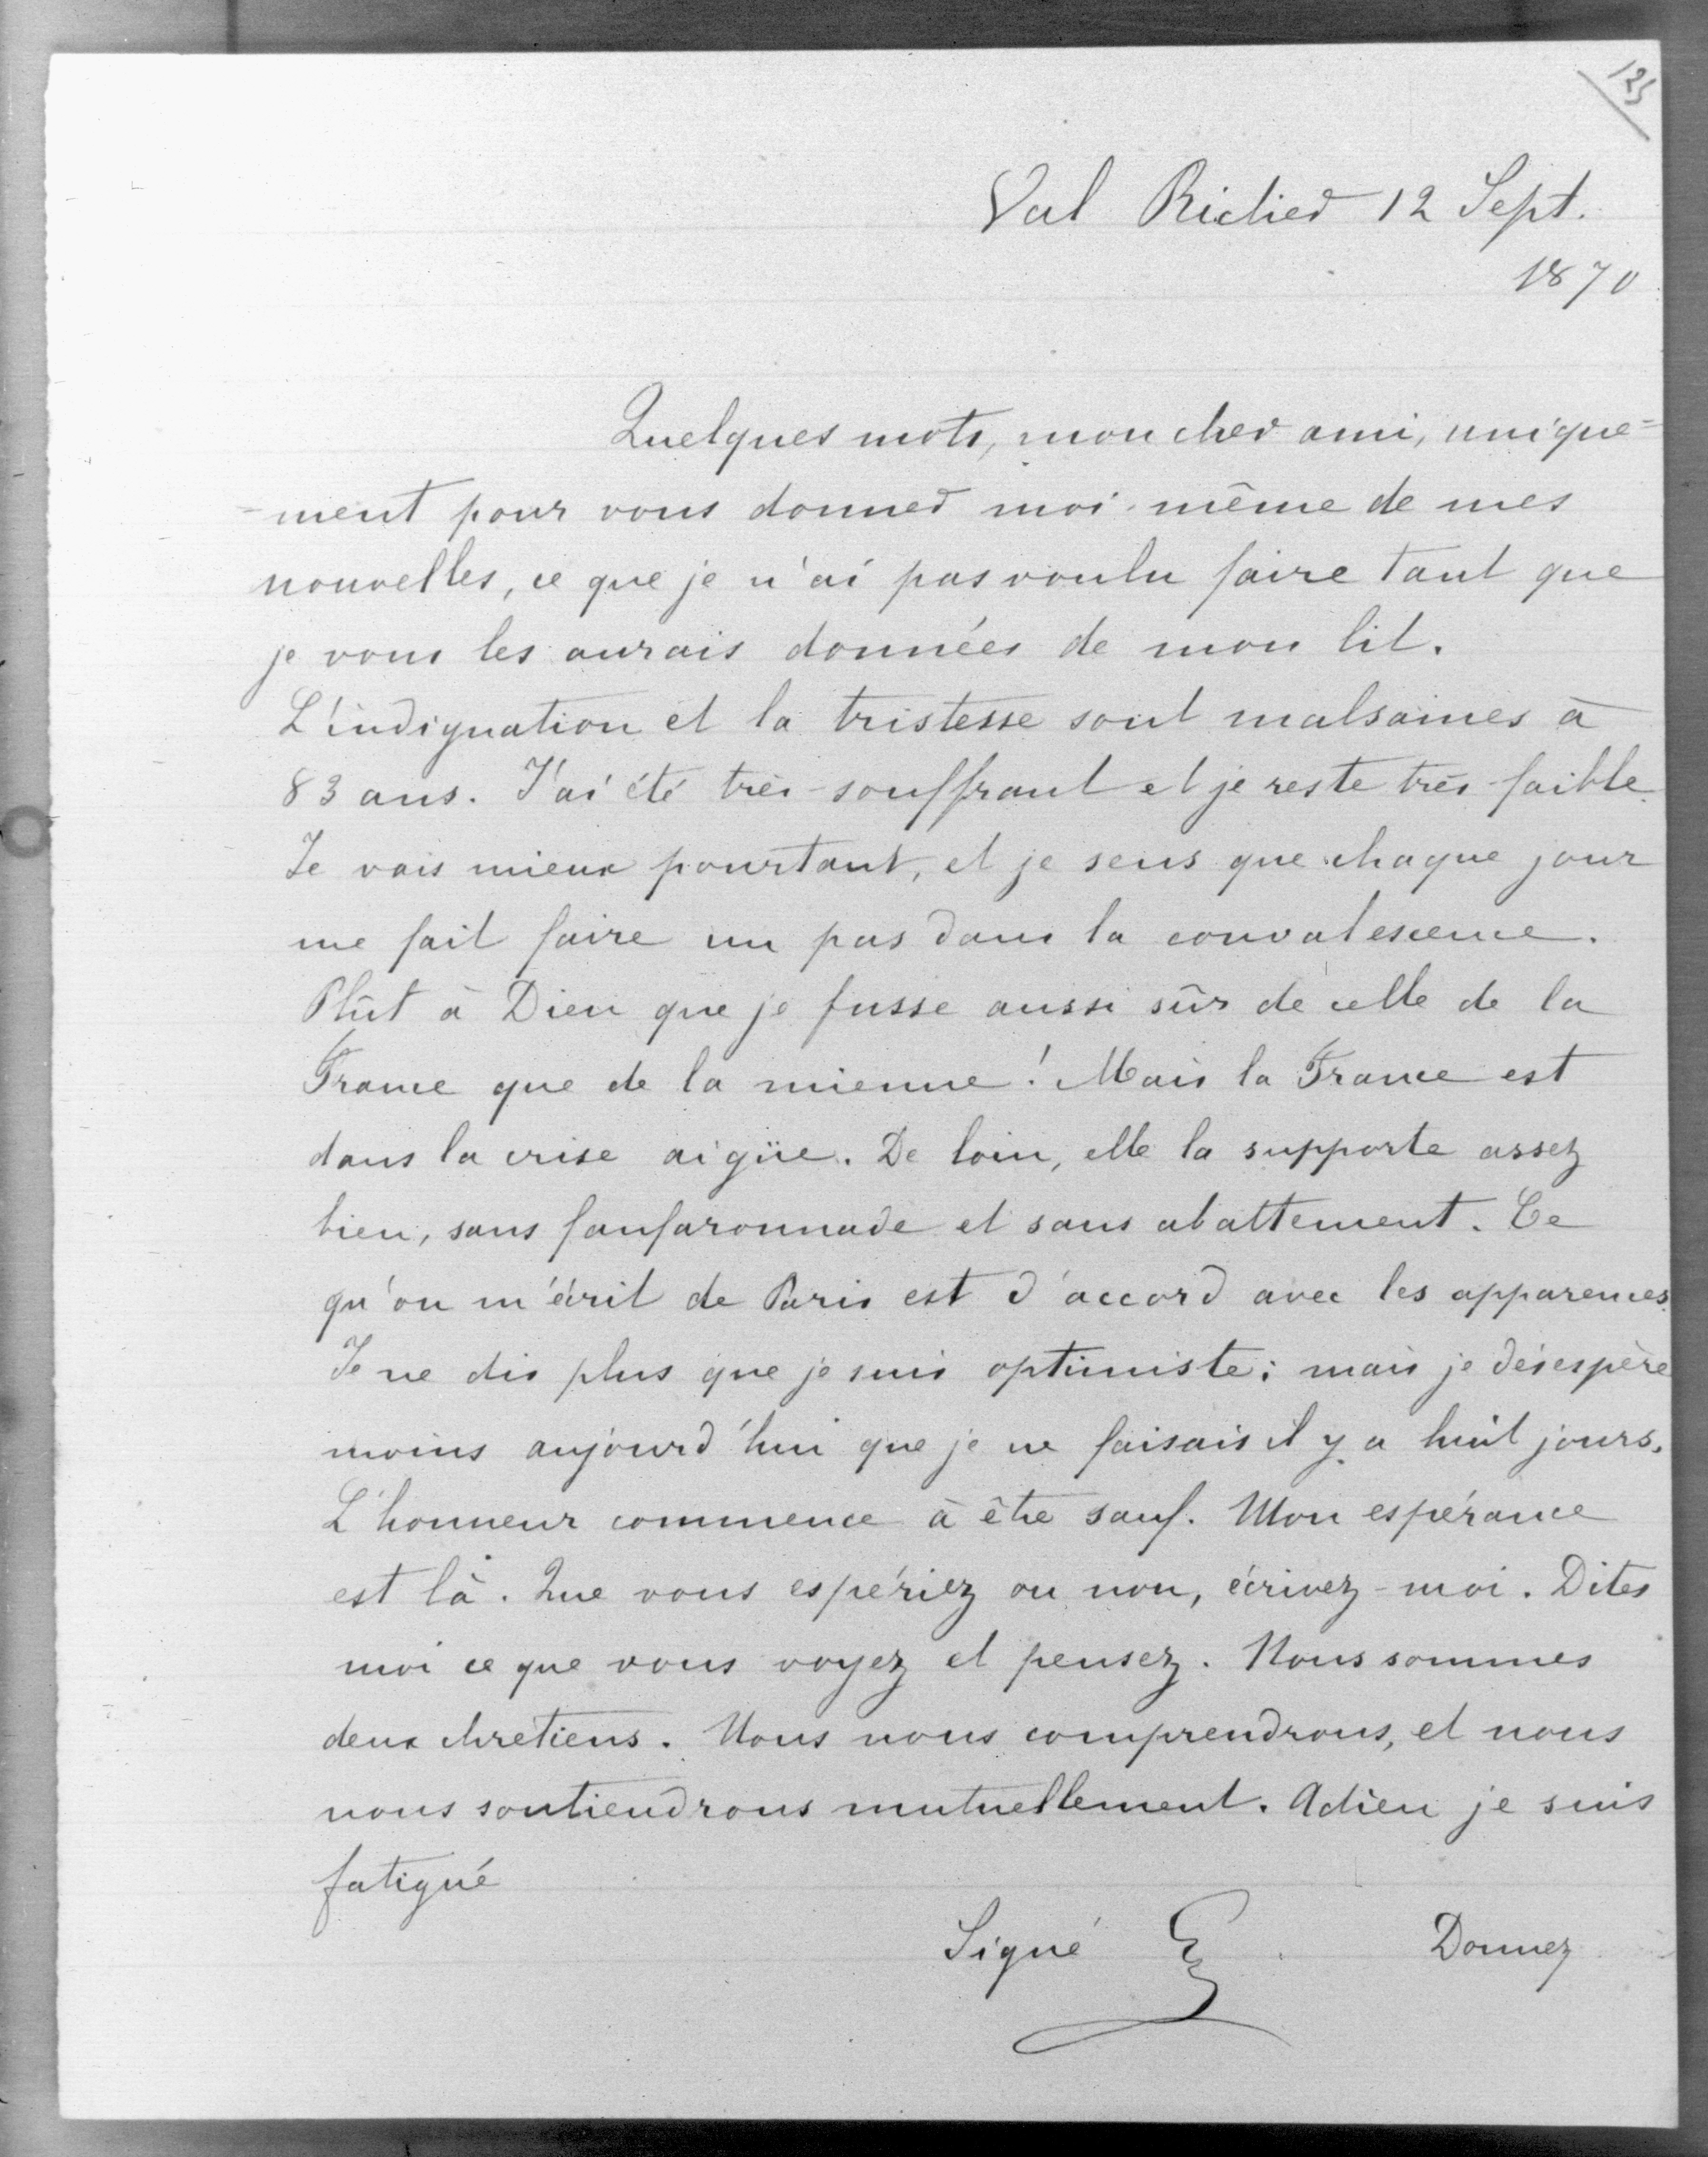 125
Val Richer 12 Sept.
1870
Quelques mots, mon cher ami, unique=
=ment pour vous donner moi-même de mes
nouvelles, ce que je n'ai pas voulu faire tant que
je vous les aurais données de mon lit.
L'indignation et la tristesse sont malsaines à
83 ans. J'ai été très-souffrant et je reste très-faible.
Je vais mieux pourtant, et je sens que chaque jour
me fait faire un pas dans la convalescence.
Plût à Dieu que je fusse aussi sûr de celle de la
France que de la mienne! Mais la France est
dans la crise aigüe. De loin, elle la supporte assez
bien, sans fanfaronnade et sans abattement. Ce
qu'on m'écrit de Paris est d'accord avec les apparences.
Je ne dis plus que je suis optimiste; mais je désespère
moins aujourd'hui que je ne faisais il y a huit jours.
L'honneur commence à être sauf. Mon espérance
est là. Que vous espériez ou non, écrivez-moi. Dites
moi ce que vous voyez et pensez. Nous sommes
deux chrétiens. Nous nous comprendrons, et nous
nous soutiendrons mutuellement. Adieu je suis
fatigué
Signé G. Donnez